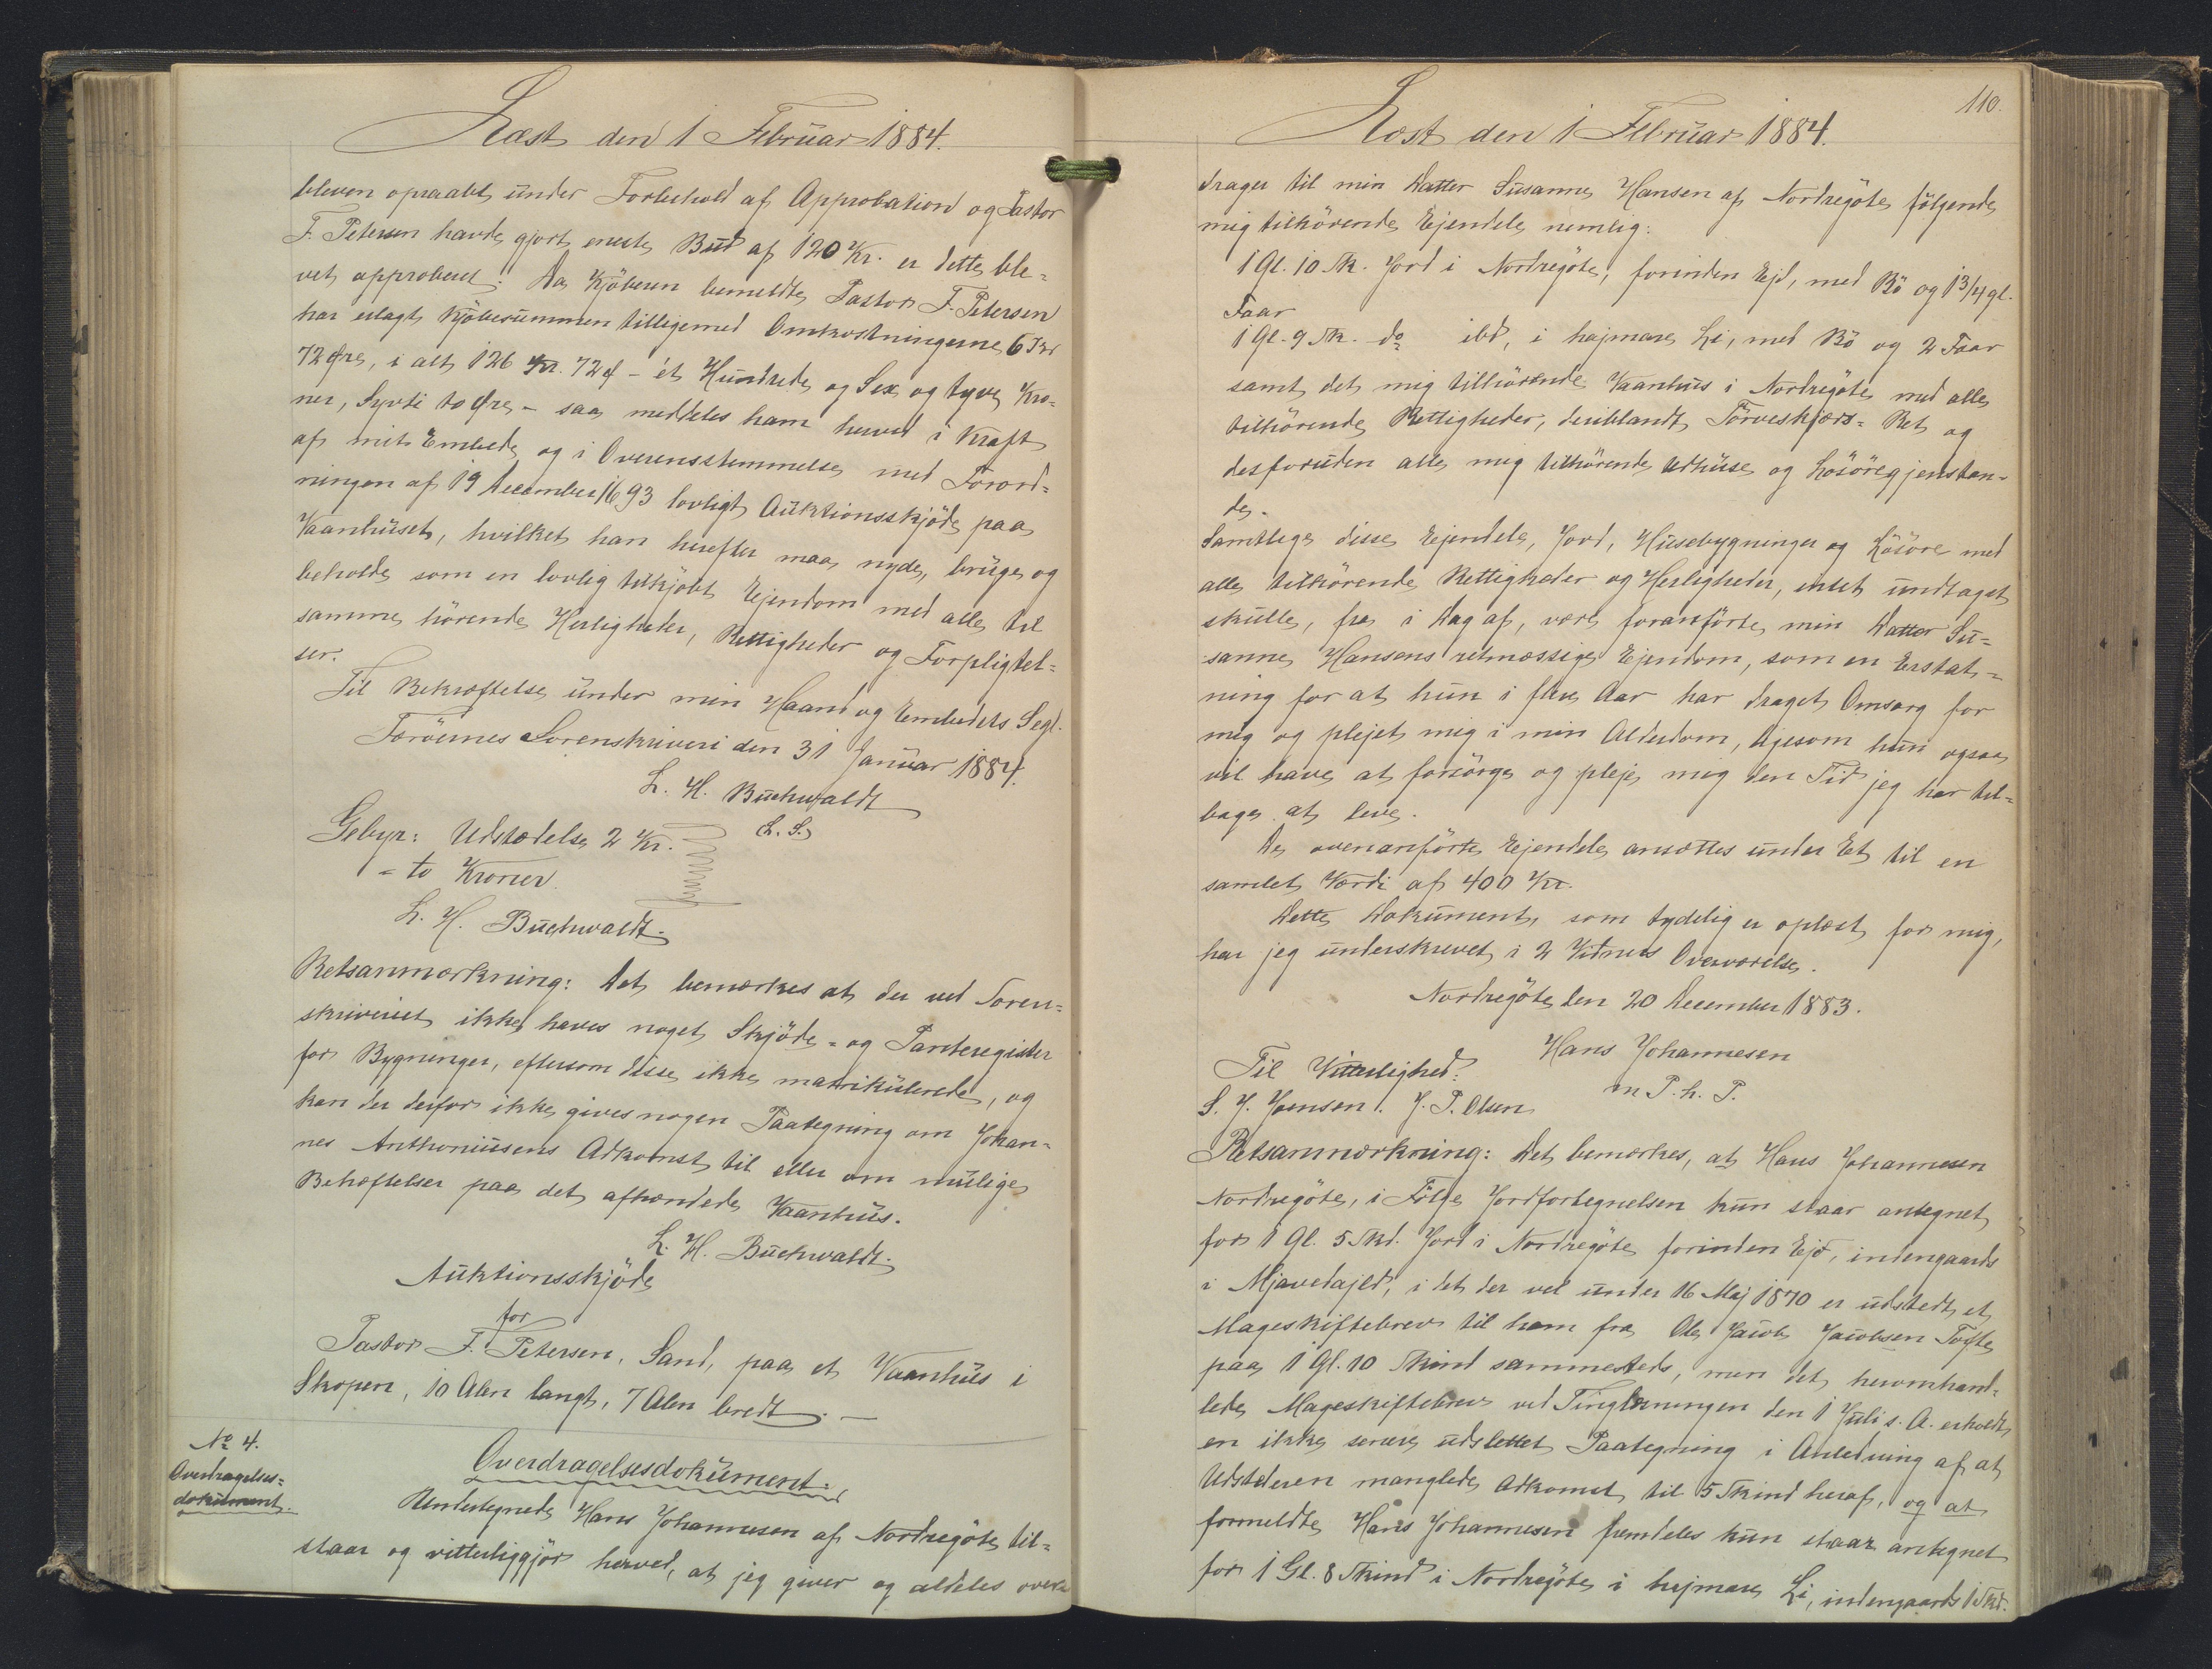 Læst den 1 Februar 1884.
bleven opraabt under Forbehold af Approbation og Pastor
F. Petersen havde gjort eneste Bud af 120 Kr. er dette ble=
vet approberet. Da Kjøberen bemeldte Pastor F. Petersen
har erlagt Kjøbesummen tilligemed Omkostningerne 6 Kr
72 Øre, i alt 126 Kr. 72 Ø - et Hundrede og Sex og tyve Kro=
ner, Syvti to Øre, - saa meddeles ham herved i Kraft
af mit Embede og i Overensstemmelse med Forord=
ningen af 19 December 1693 lovligt Auktionsskjøde paa
Vaanhuset, hvilket han herefter maa nyde, bruge og
beholde som en lovlig tilkjøbt Ejendom med alle til
samme hørende Herligheder, Rettigheder og Forpligtel=
ser.
Til Bekræftelse under min Haand og Embedets Segl.
Færøernes Sorenskriveri den 31 Januar 1884.
L. H. Buchwaldt
(L. S.)
Gebyr: Udstædelse 2 Kr.
= to Kroner.
L. H. Buchwaldt.
Retsanmærkning: Det bemærkes at der ved Soren=
skriveriet ikke haves noget Skjøde= og Panteregister
for Bygninger, eftersom disse ikke matrikulerede, og
kan der derfor ikke gives nogen Paategning om Johan=
nes Anthoniusens Adkomst til eller om mulige
Behæftelser paa det afhændede Vaanhus.
L. H. Buchwaldt.
Auktionsskjøde
for
Pastor F. Petersen, Sand, paa et Vaanhus i
Skopen, 10 Alen langt, 7 Alen bredt. —
No 4.
Overdragelses=
dokument.
Overdragelsesdokument.
Undertegnede Hans Johannesen af Nordregøte til=
staar og vitterliggjør herved, at jeg giver og aldeles over=
110.
Læst den 1 Februar 1884.
drager til min Datter Susanne Hansen af Nordregøte følgende
mig tilhørende Ejendele nemlig:
1 Gl. 10 Sk. Jord i Nordregøte, forinden Ejd, med Bø og 1 3/4 gl.
Faar
1 Gl. 9 Sk. do ibd, i hajmare Li, med Bø og 2 Faar
samt det mig tilhørende Vaanhus i Nordregøte med alle
tilhørende Rettigheder, deriblandt Tørveskjærs= Ret og
desforuden alle mig tilhørende Udhuse og Løsøregjenstan=
de.
Samtlige disse Ejendele, Jord, Husebygninger og Løsøre med
alle tilhørende Rettigheder og Herligheder, intet undtaget
skulle, fra i Dag af, være foranførte min Datter Su=
sanne Hansens retmæssige Ejendom, som en Erstat=
ning for at hun i flere Aar har draget Omsorg for
mig og plejet mig i min Alderdom, ligesom hun ogsaa
vil have at forsørge og pleje mig den Tid jeg har til=
bage at leve.
De ovenanførte Ejendele ansættes under Et til en
samlet Værdi af 400 Kr.
Dette Dokument, som tydelig er oplæst for mig,
har jeg underskrevet i 2 Vidners Overværelse.
Nordregøte den 20 December 1883.
Hans Johannesen
m P. h. P.
Til Vitterlighed:
S. J. Joensen. J. P. Olsen
Retsanmærkning: Det bemærkes, at Hans Johannesen
Nordregøte, i Følge Jordfortegnelsen kun staar antegnet
for 1 Gl. 5 Skd. Jord i Nordregøte forinden Ejd, indengaards
i Mjavedajld, i det der vel under 16 Maj 1870 er udstedt et
Mageskiftebrev til ham fra Ole Jacob Jacobsen Tofte
paa 1 Gl. 10 Skind sammesteds, men det heromhand=
lede Mageskiftebrev ved Tinglæsningen den 1 Juli s. A. erholdt
en ikke senere udslettet Paategning i Anledning af at
Udstederen manglede Adkomst til 5 Skind heraf, og at
formeldte Hans Johannesen fremdeles kun staar antegnet
for 1 Gl. 8 Skind i Nordregøte i hejmare Li, indengaards 1 Skd.